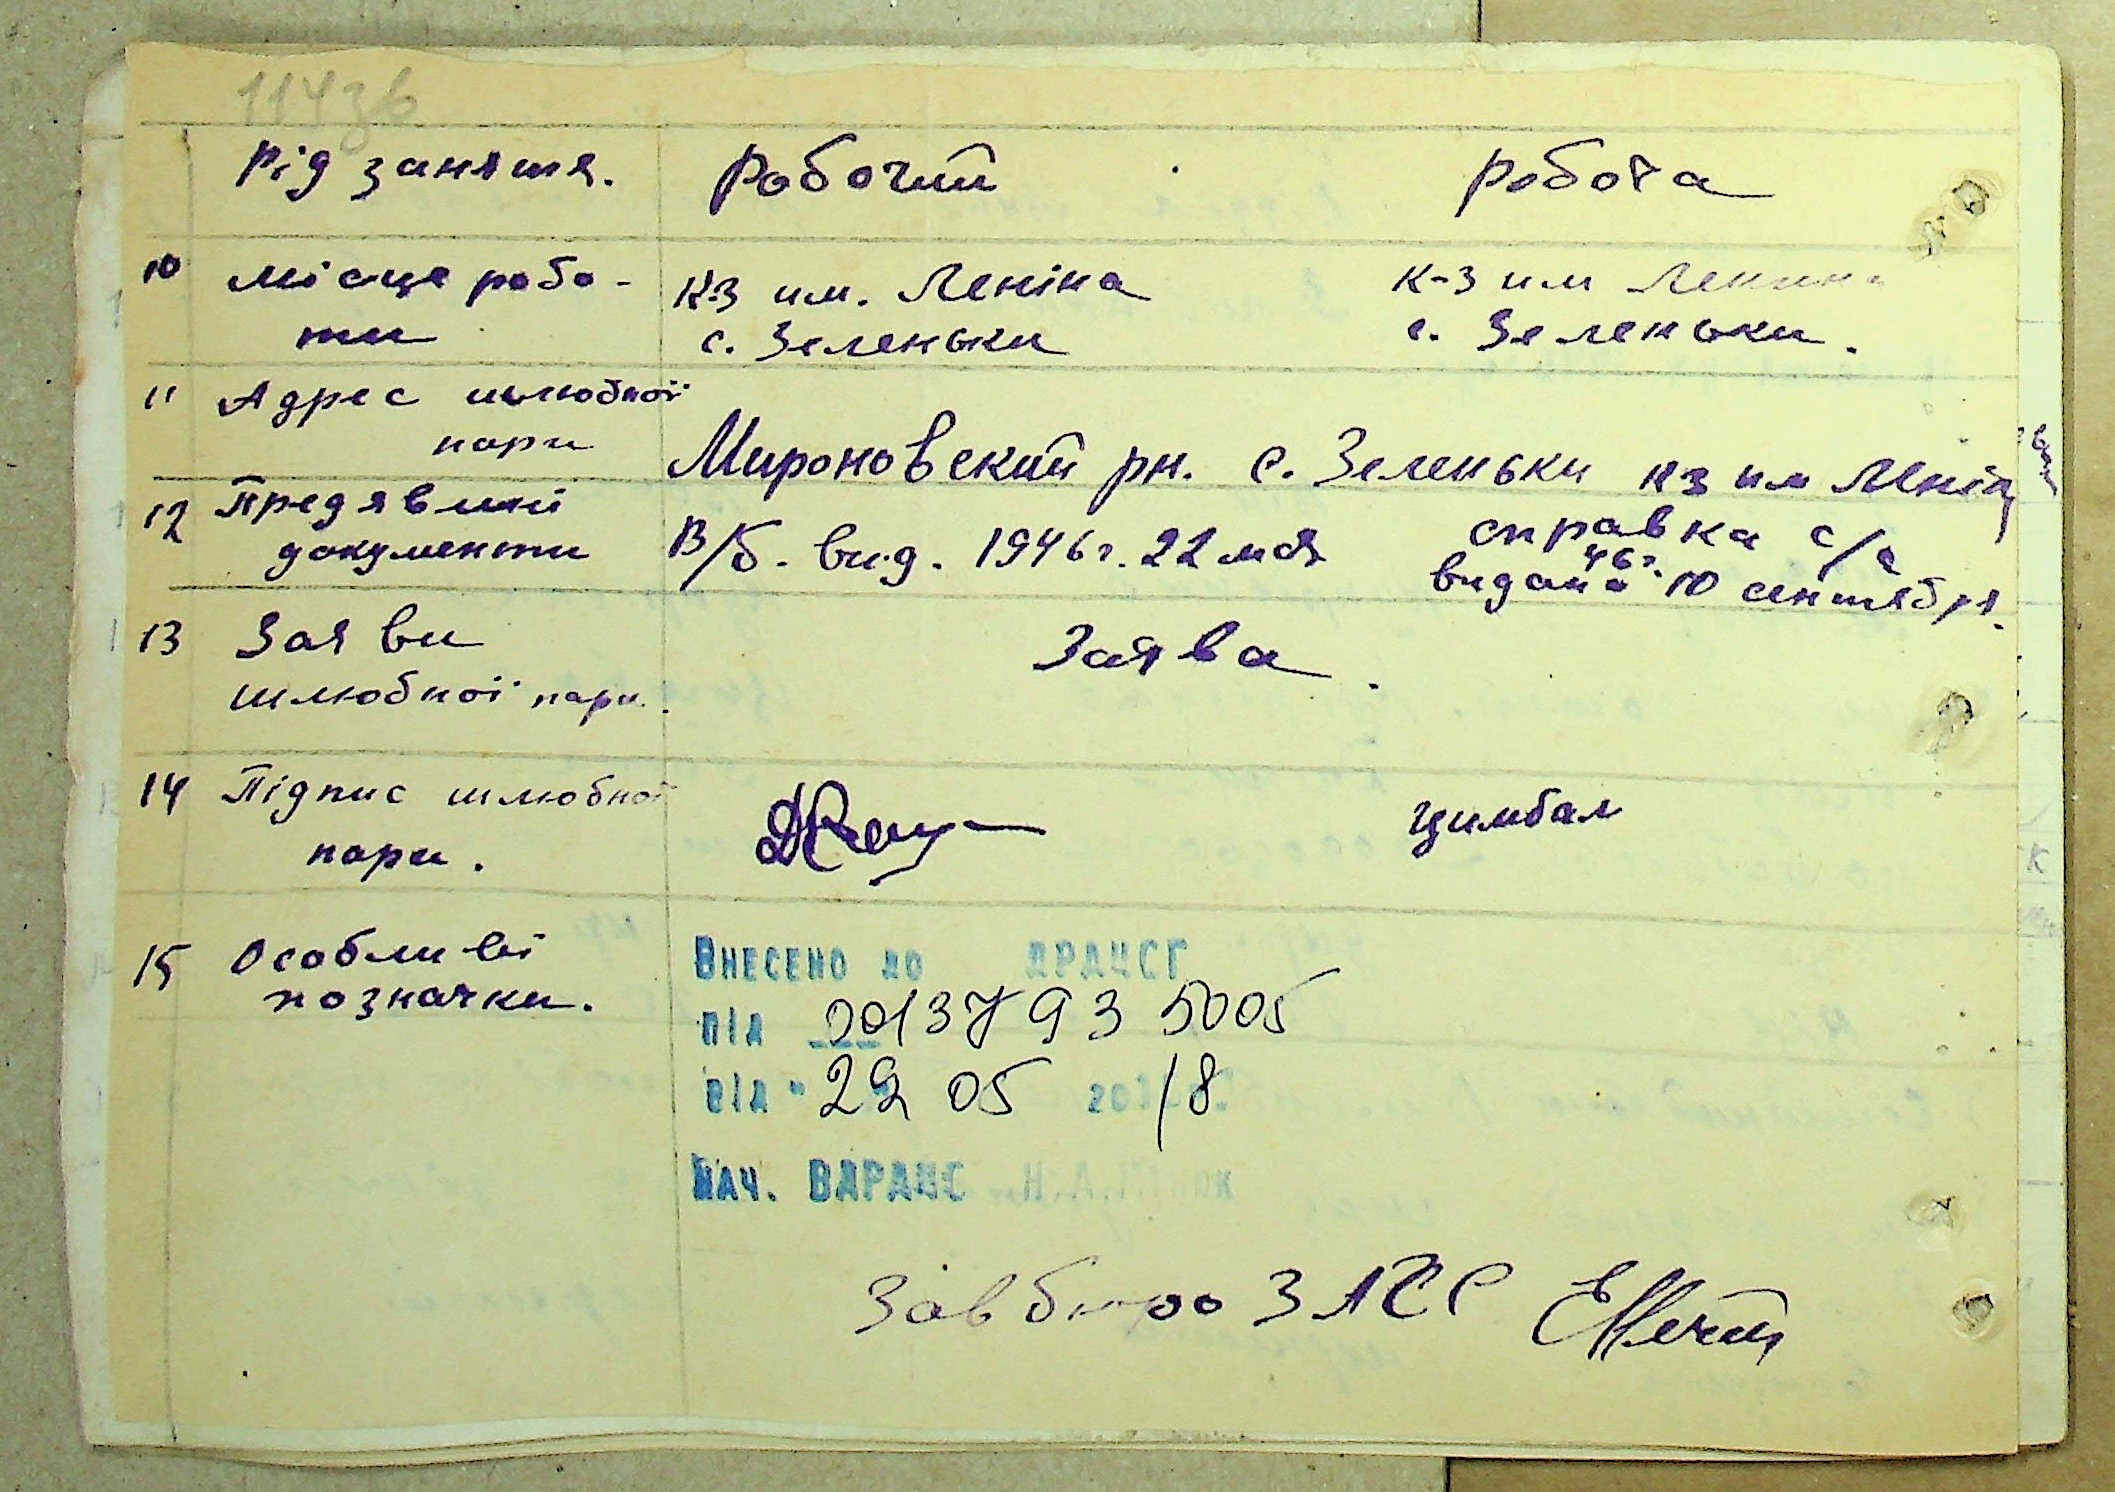 114зв
Рід заняття. Робочий робоча
10 Місце робо- К-З им. Леніна К-З им Ленина
ти с. Зеленьки с. Зеленьки.
11 Адрес шлюбної
пари Мироновский рн. с. Зеленьки кз им Леніна
12 Предявлені справка с/с
документи В/б. вид. 1946 г. 22 мая видана 46 г. 10 сентября.
13 Заяви Заява.
шлюбної пари.
14 Підпис шлюбної Цимбал
пари.
15 Особливі Внесено до ДРАЦСГ
позначки. під 00137935005
від " 29 05 2018
Нач. ВДРАЦС
Зав бюро ЗАГС